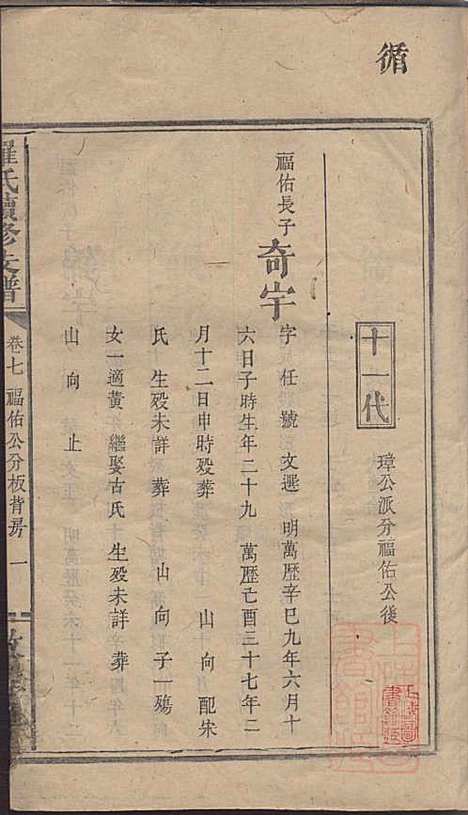 循
璋公派分福佑公後
十一代
福佑長子
奇宇
字 任 號 文選 明萬歷辛巳九年六月十
六日子時生年二十九 萬歷己酉三十七年二
月十二日申時殁葬 山向 配宋
氏 生殁未詳 葬 山向子一殤
女一適黃 繼娶古氏 生殁未詳 葬
山向 止
羅氏續修支譜
卷七 福佑公分板背房 一